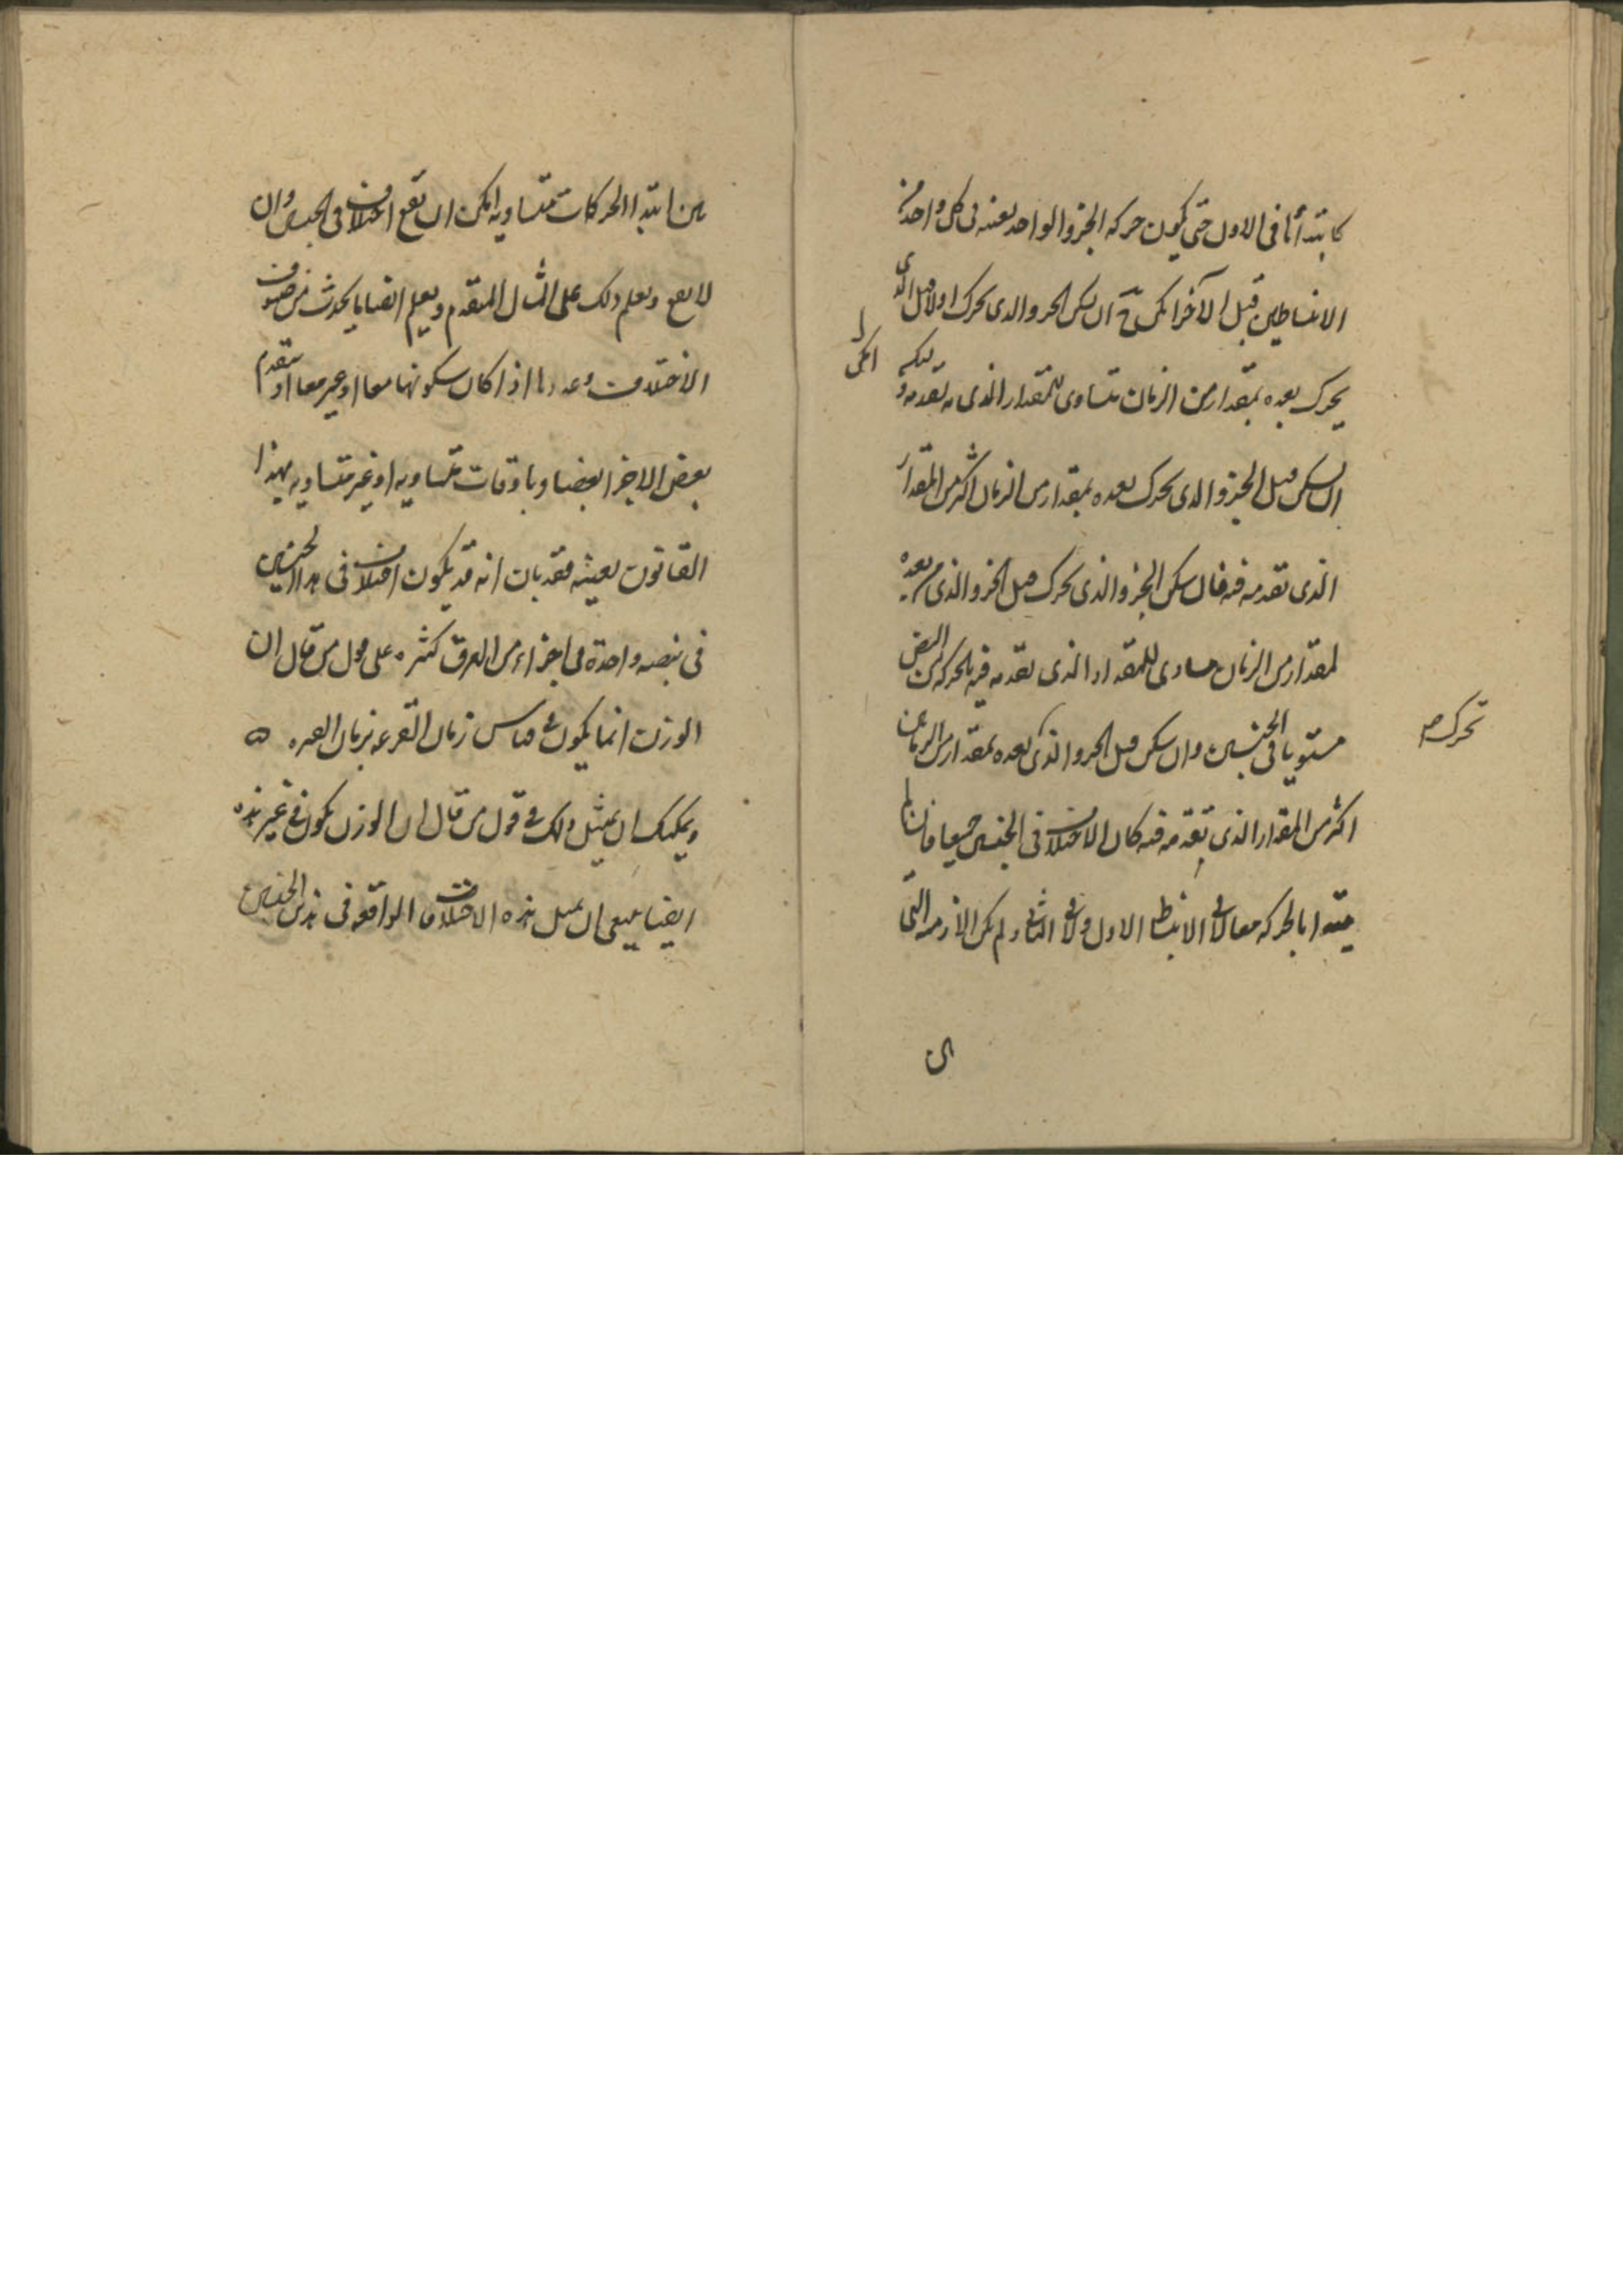 كابتدأنا فى الاول حتى يكون حركه الجزو الواحد بعينه فى كل واحد من
الانبساطين قبل الآخر امكن ان يسكن الجزو الدى يحرك اولا قبل الذى
يحرك بعده بمقدار من الزمان متساوى للمقدار الذى تقدمه
ان يسكن قبل الجزو الدى يحرك بعده بمقدار من الزمان اكثر من المقدار
الذى تقدمه فيه فان سكن الجزو الذى يحرك قبل الجزو الذى بعده
بمقدار من الزمان مساوى للمقدار الذى تقدمه فيه بالحركه النبض
تحرك
مستويا فى الجنسين وان سكن قبل الجزو الذى بعده بمقدار من الزمان
اكثر من المقدار الذى تقدمه فيه كان الاختلاف فى الجنسين جميعا فان لم
يبتدا بالحركه معا لا فى الانبساط الاول ولا فى الثانى ولم يكن الازمنه التى
بين ابتدا الحركات متساويه امكن ان يقع اختلاف فى الجنسين وان
لا يقع ويعلم ذلك على المثال المتقدم ويعلم ايضا ما يحدث من صنوف
الاختلاف وعددها اذا كان سكونها معا او غير معا او يتقدم
بعض الاجزا بعضا وباوقات متساويه او غير متساويه بهذا
القانون بعينه فقد بان انه قد يكون اختلاف فى هذا الجنسين
فى نبضه واحدة فى اجزاء من العرق كثيره على قول من قال ان
الوزن انما يكون فى قياس زمان القرعه بزمان الفتره
ويمكنك ان يمثل ذلك فى قول من قال ان الوزن يكون فى غير هذه
ايضا ينبغى ان يمثل هذه الاختلاف الواقعه فى هذين الجنسين